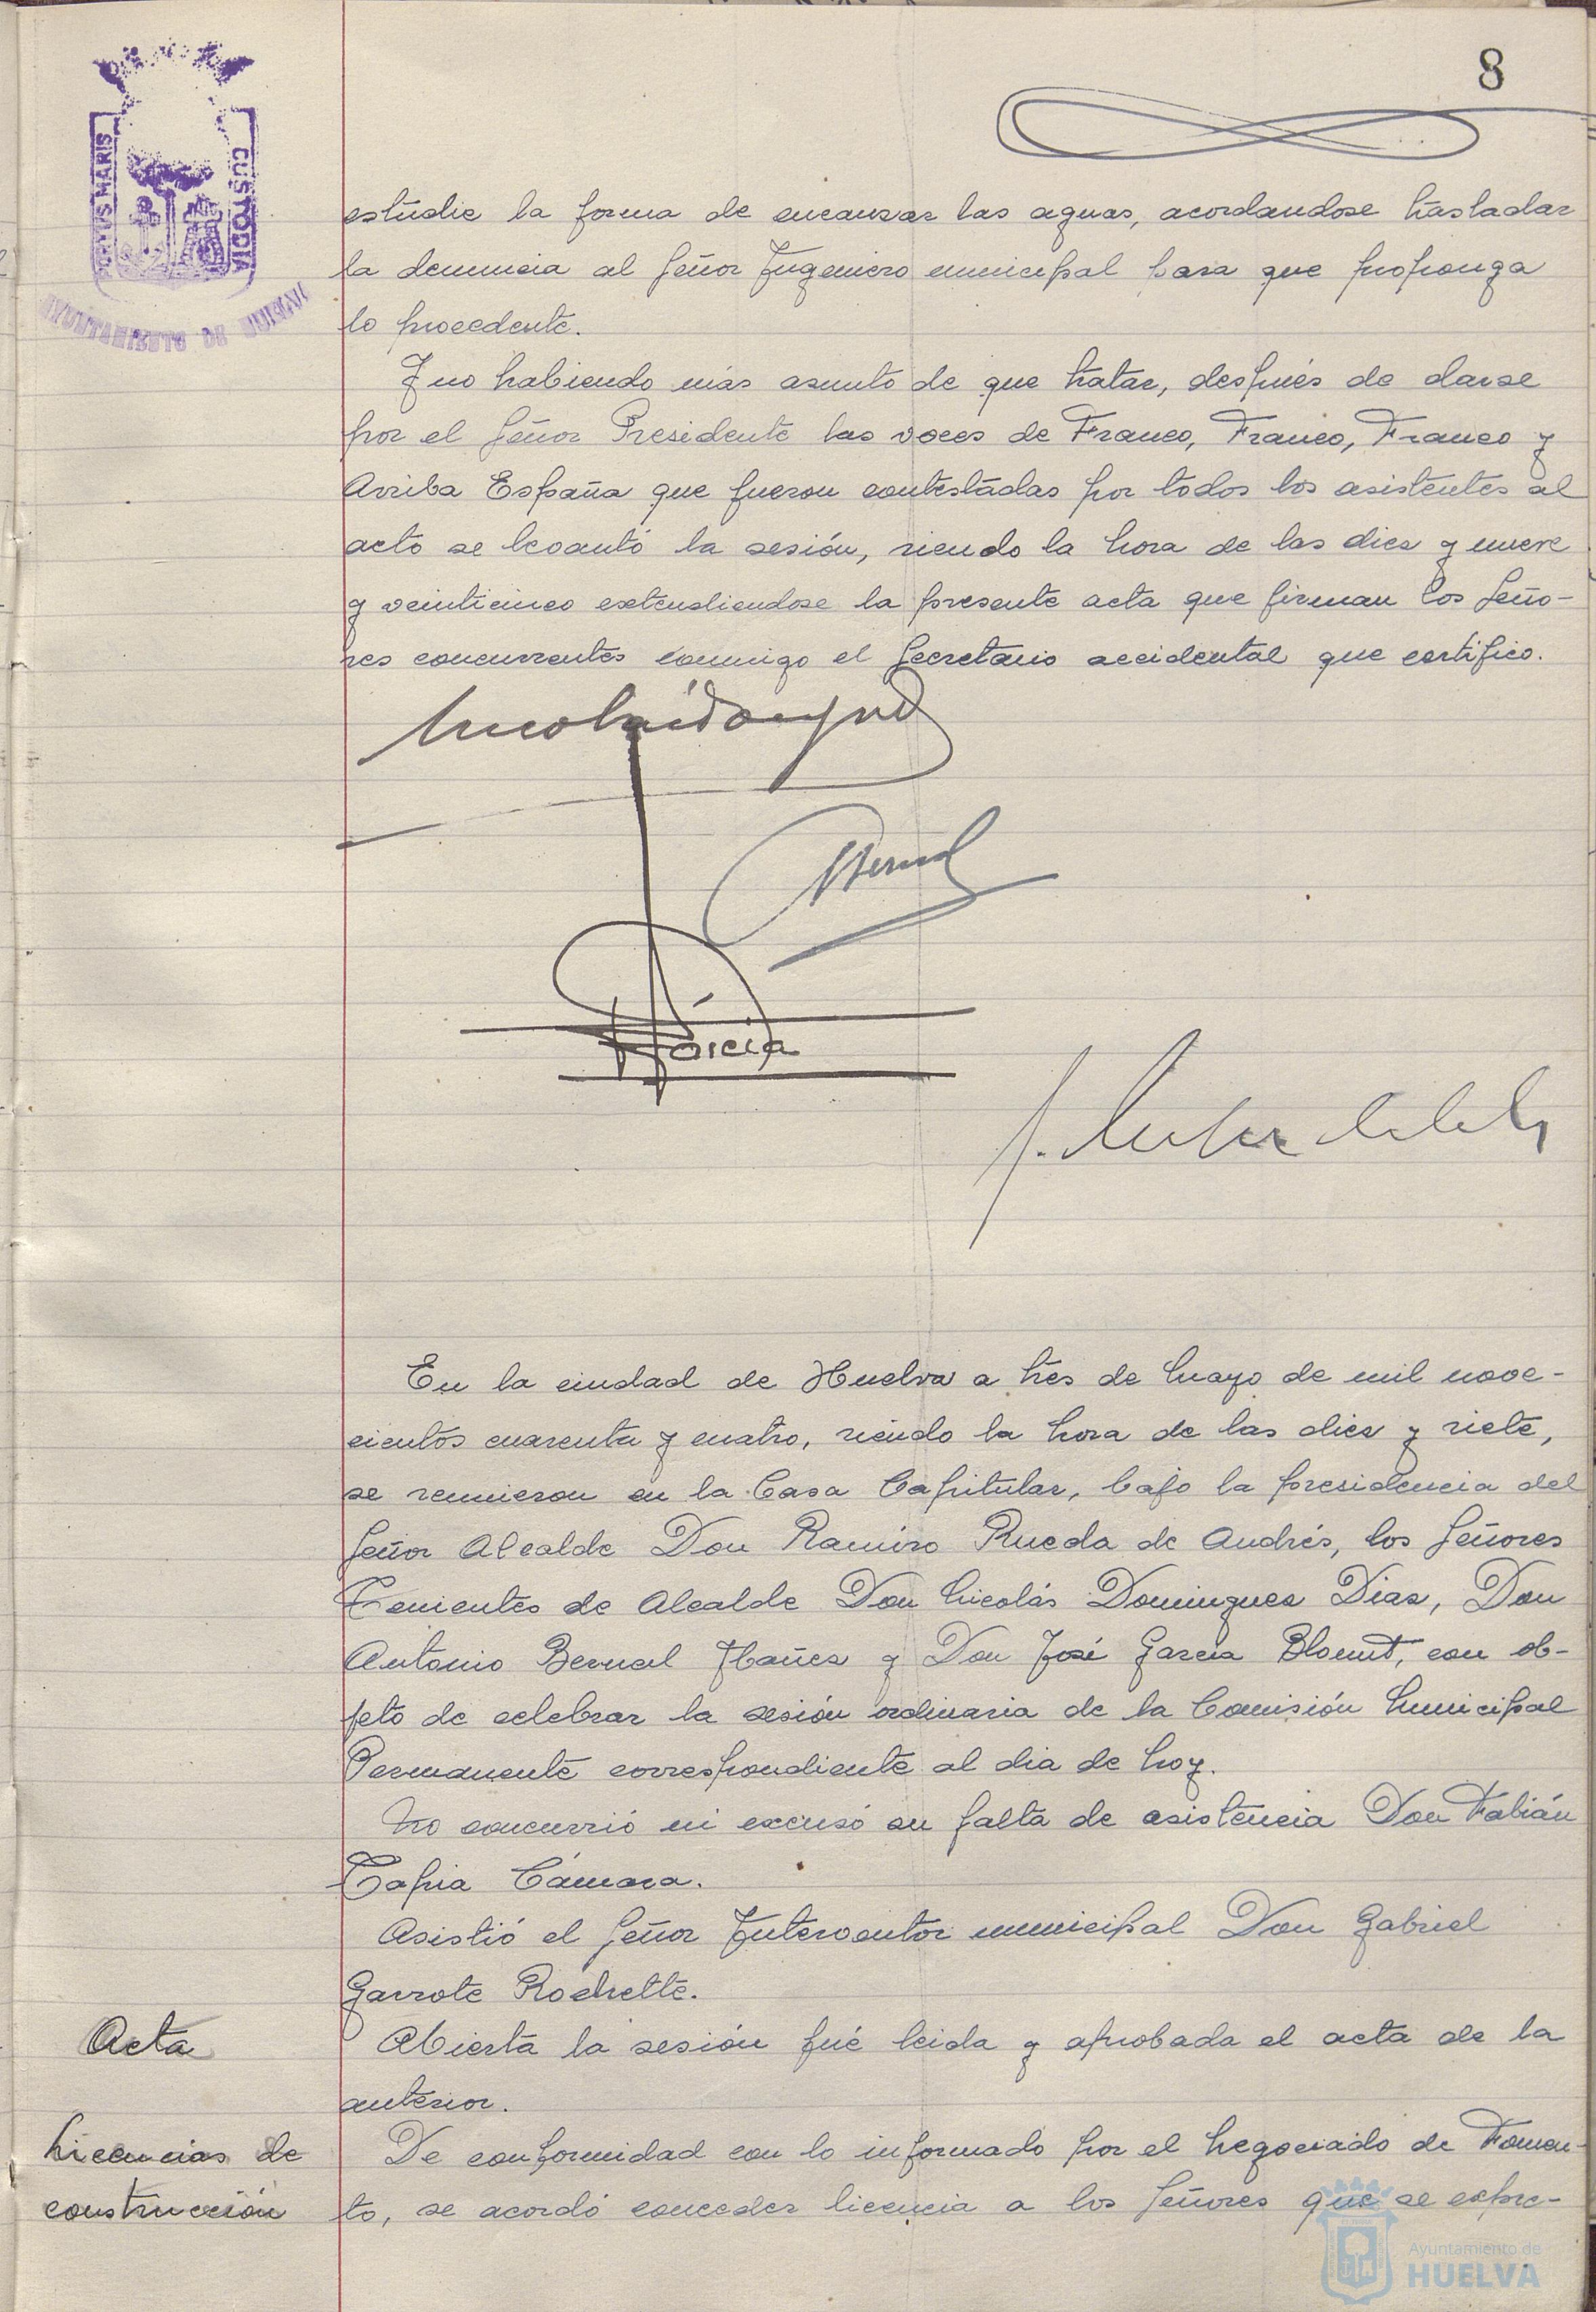 8
PORTUS MARIS
CUSTODIA
AYUNTAMIENTO DE HUELVA
estudie la forma de encauzar las aguas, acordandose trasladar
la denuncia al Señor Ingeniero municipal para que proponga
lo procedente.
Y no habiendo más asunto de que tratar, después de darse
por el Señor Presidente las voces de Franco, Franco, Franco y
Arriba España que fueron contestadas por todos los asistentes al
acto se levantó la sesión, siendo la hora de las diez y nueve
y veinticinco extendiendose la presente acta que firman los Seño-
res concurrentes conmigo el Secretario accidental que certifico.
Bernal
García
En la ciudad de Huelva a tres de Mayo de mil nove-
cientos cuarenta y cuatro, siendo la hora de las diez y siete,
se reunieron en la Casa Capitular, bajo la presidencia del
Señor Alcalde Don Ramiro Rueda de Andrés, los Señores
Tenientes de Alcalde Don Nicolás Dominguez Diaz, Don
Antonio Bernal Ibañez y Don José García Blomut, con ob-
jeto de celebrar la sesión ordinaria de la Comisión Municipal
Permanente correspondiente al dia de hoy.
No concurrió ni excusó su falta de asistencia Don Fabián
Tapia Cámara.
Asistió el Señor Interventor municipal Don Gabriel
Garrote Rochette.
Acta
Abierta la sesión fué leida y aprobada el acta de la
anterior.
Licencias de
construcción
De conformidad con lo informado por el Negociado de Fomen-
to, se acordó conceder licencia a los Señores que se expre-
Ayuntamiento de
HUELVA